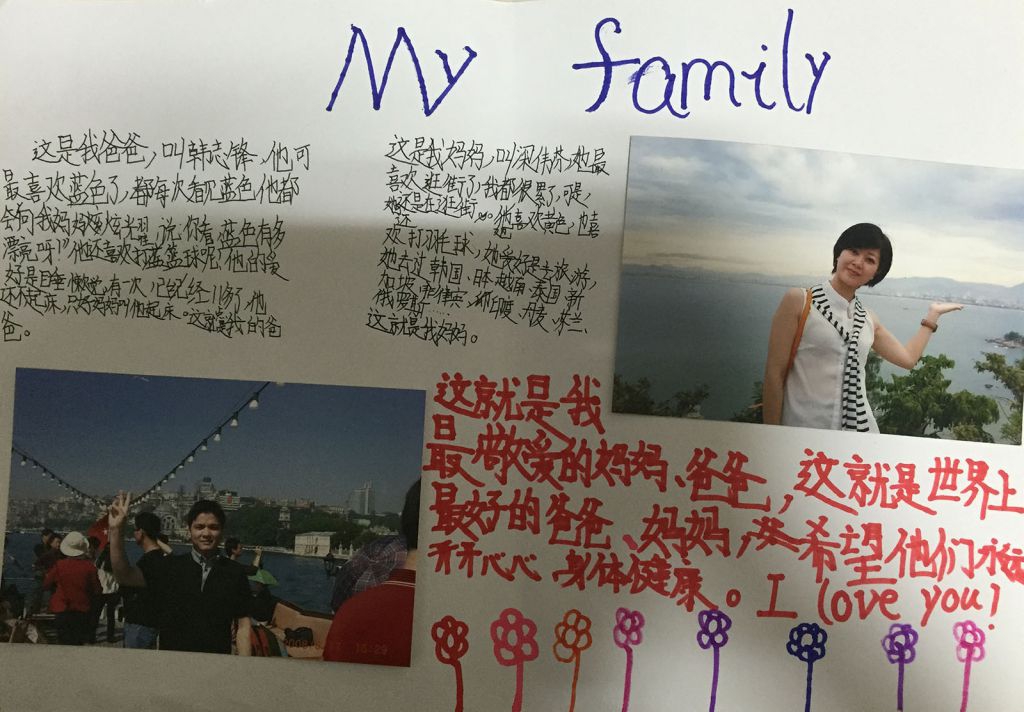 My family
这是我爸爸，叫韩志锋，他可
最喜欢蓝色了，每次看见蓝色，他都
会向我妈妈炫耀，说："你看蓝色有多
漂亮呀！"他还喜欢打篮球呢！他的爱
好是睡懒觉，有一次，已经11点了，他
还不起床，只好妈妈叫他起床。这就是我的爸
爸。
这是我妈妈，叫梁伟芬，她最
喜欢逛街了，我都很累了，可是，
她还是在逛街。她喜欢黄色，也喜
欢打羽毛球，她爱好是去旅游，
她去过韩国、日本、越南、泰国、新
加坡、菲律宾、印度、丹麦、米兰、
俄罗斯……
这就是我妈妈。
这就是我
最敬爱的妈妈、爸爸，这就是世界上
最好的爸爸、妈妈，希望他们永远
开开心心，身体健康。I love you!
16:29